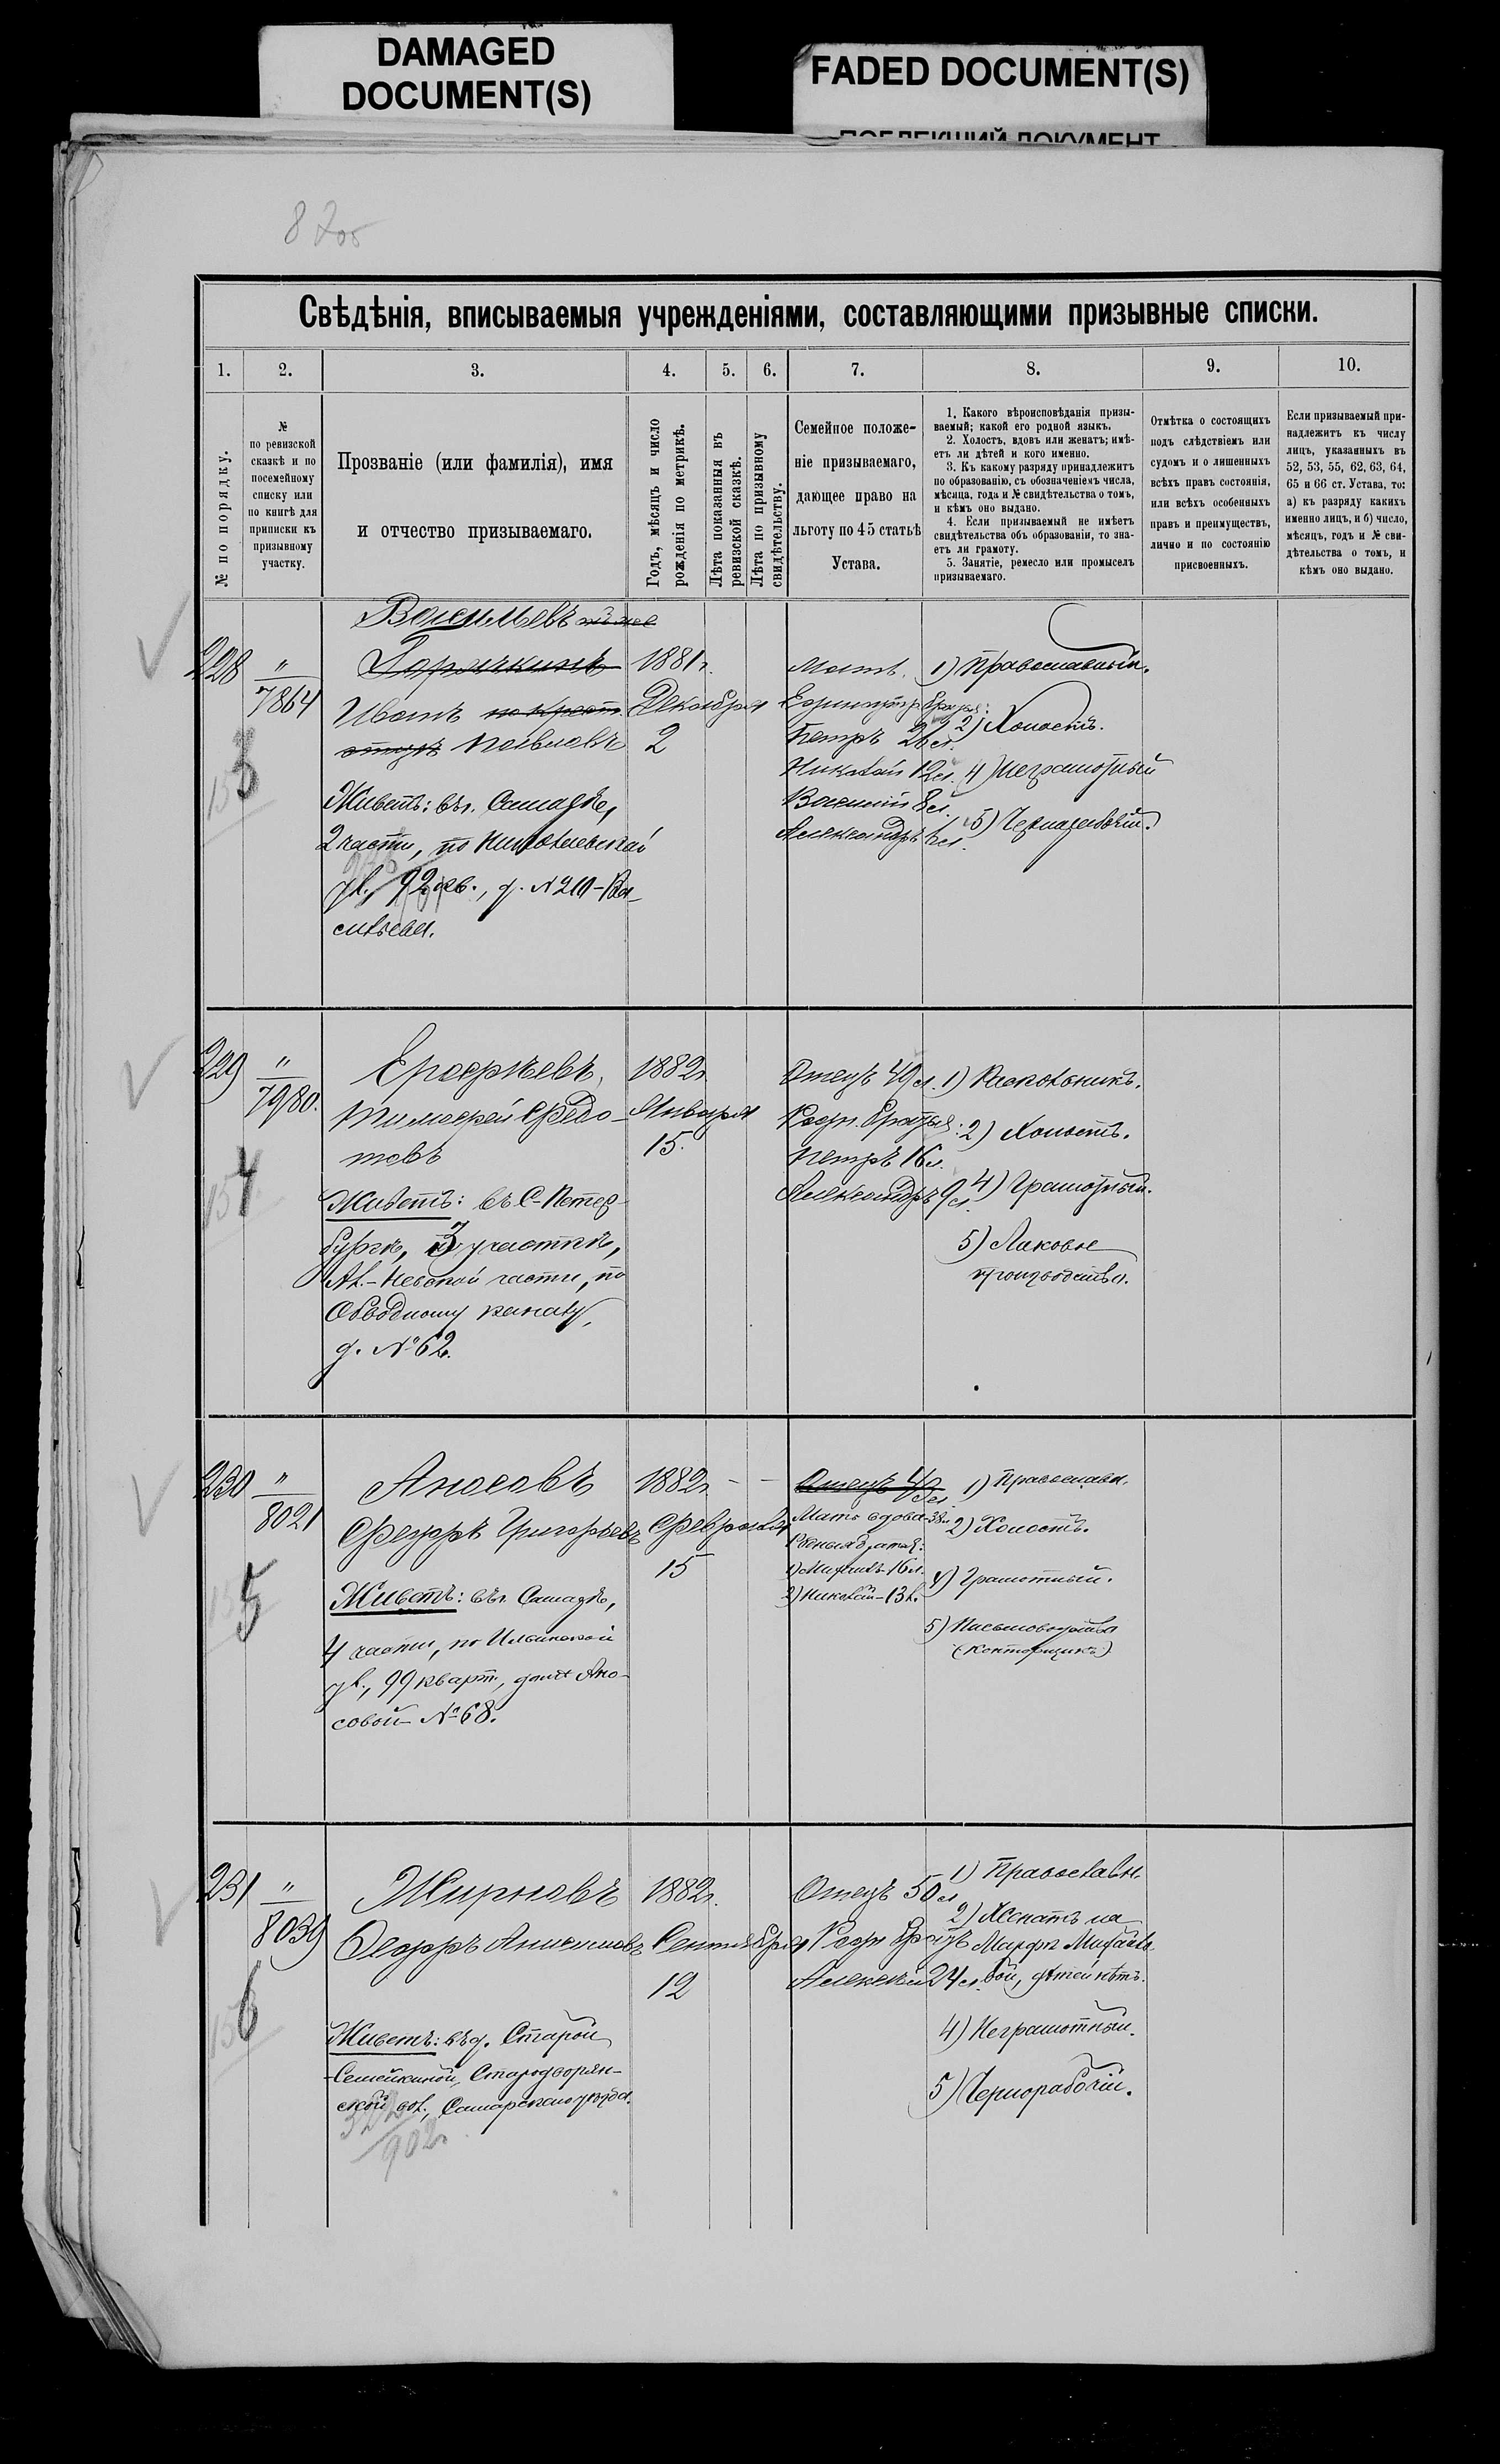 DAMAGED
DOCUMENT(S)
FADED DOCUMENT(S)
ПОБЛЕКШИЙ ДОКУМЕНТ
Свѣдѣнія, вписываемыя учрежденіями, составляющими призывные списки.
1.
2.
3.
4.
5.
6.
7.
8.
9.
10.
№ по порядку.
№
по ревизской
сказкѣ и по
посемейному
списку или
по книгѣ для
приписки къ
призывному
участку.
Прозваніе (или фамилія), имя
и отчество призываемаго.
Годъ, мѣсяцъ и число
рожденія по метрикѣ.
Лѣта показанныя въ
ревизской сказкѣ.
Лѣта по призывному
свидѣтельству.
Семейное положе-
ніе призываемаго,
дающее право на
льготу по 45 статьѣ
Устава.
1. Какого вѣроисповѣданія призы-
ваемый; какой его родной языкъ.
2. Холостъ, вдовъ или женатъ; имѣ-
етъ ли дѣтей и кого именно.
3. Къ какому разряду принадлежитъ
по образованію, съ обозначеніемъ числа,
мѣсяца, года и № свидѣтельства о томъ,
и кѣмъ оно выдано.
4. Если призываемый не имѣетъ
свидѣтельства объ образованіи, то зна-
етъ ли грамоту.
5. Занятіе, ремесло или промыселъ
призываемаго.
Отмѣтка о состоящихъ
подъ слѣдствіемъ или
судомъ и о лишенныхъ
всѣхъ правъ состоянія,
или всѣхъ особенныхъ
правъ и преимуществъ,
лично и по состоянію
присвоенныхъ.
Если призываемый при-
надлежитъ къ числу
лицъ, указанныхъ въ
52, 53, 55, 62, 63, 64,
65 и 66 ст. Устава, то:
а) къ разряду какихъ
именно лицъ, и б) число,
мѣсяцъ, годъ и № сви-
дѣтельства о томъ, и
кѣмъ оно выдано.
228
"
7864
3
Васильевъ
Горячкинъ
Иванъ по крест.
отцу Павловъ
Живетъ: въ г. Самарѣ,
2 части, по Николаевской
ул., 92 кв., д. № 210 - Ва-
сильева.
1881 г.
Декабря
2
Мать.
Единоутр. братья:
Петръ 20 л.
Николай 12 л.
Василій 8 л.
Александръ
1) Православный.
2) Холостъ.
4) Неграмотный
5) Чернорабочій.
229
"
7980.
4
Ерофѣевъ,
Тимофей Федо-
товъ
Живетъ: въ С-Петер-
бургѣ, 3 участка,
Ал.-Невской части, по
Обводному каналу,
д. № 62.
1882 г.
Января
15.
Отецъ 49 л.
Родн. братья:
Петръ 16 л.
Александръ 9 л.
1) Раскольникъ.
2) Холостъ.
4) Грамотный.
5) Лаковое
производство.
230
"
8021
5
Аносовъ
Федоръ Григорьевъ
Живетъ: въ г. Самарѣ,
4 части, по Ильинской
ул., 99 кварт., домъ Ано-
совой № 68.
1882 г.
Февраля
15
Отецъ
Мать вдова - 38 л.
Родные братья:
1) Михаилъ - 16 л.
2) Николай - 13 л.
1) Православн.
2) Холостъ.
4) Грамотный.
5) Письмоводства
(Конторщикъ)
231
"
8039
6
Жирновъ
Федоръ Анисимовъ
Живетъ: въ д. Старой
Семейкиной, Стародворян-
ской вол., Самарскаго уѣзда.
902 г.
1882 г.
Сентября
12
Отецъ 50 л.
Родн. братъ
Алексѣй 24 л.
1) Православн.
2) Женатъ на
Марфѣ Михайло-
вой, дѣтей нѣтъ.
4) Неграмотный.
5) Чернорабочій.